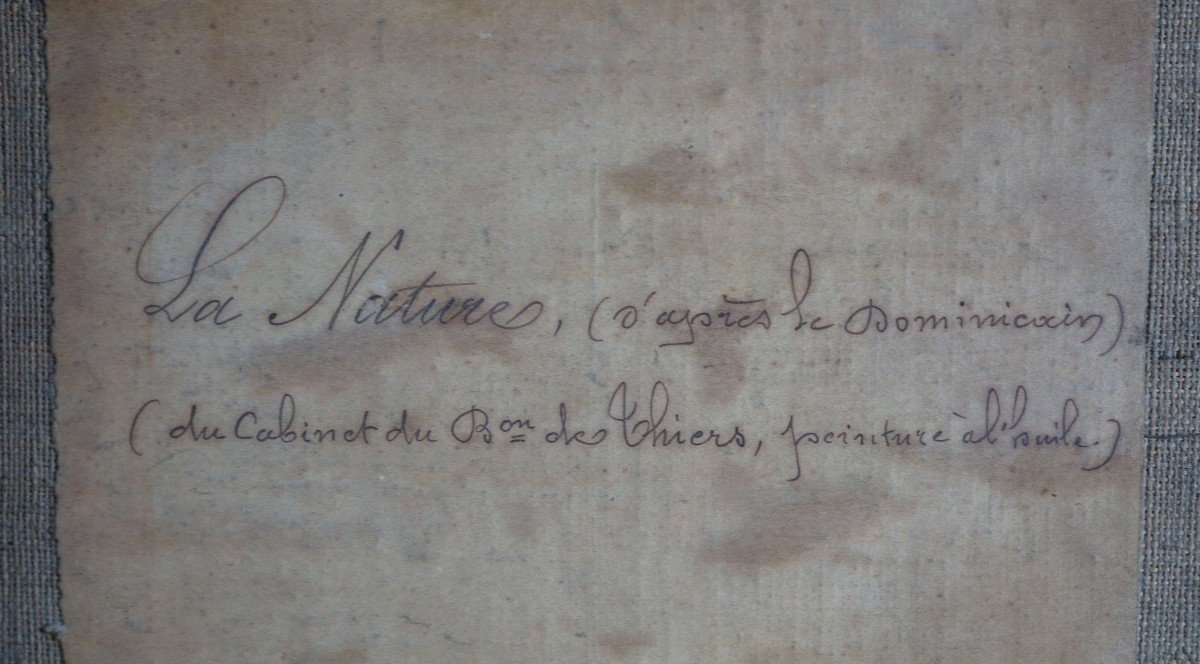 La Nature, (d'après le Dominicain)
(du Cabinet du Bon de Thiers, peinture à l'huile.)